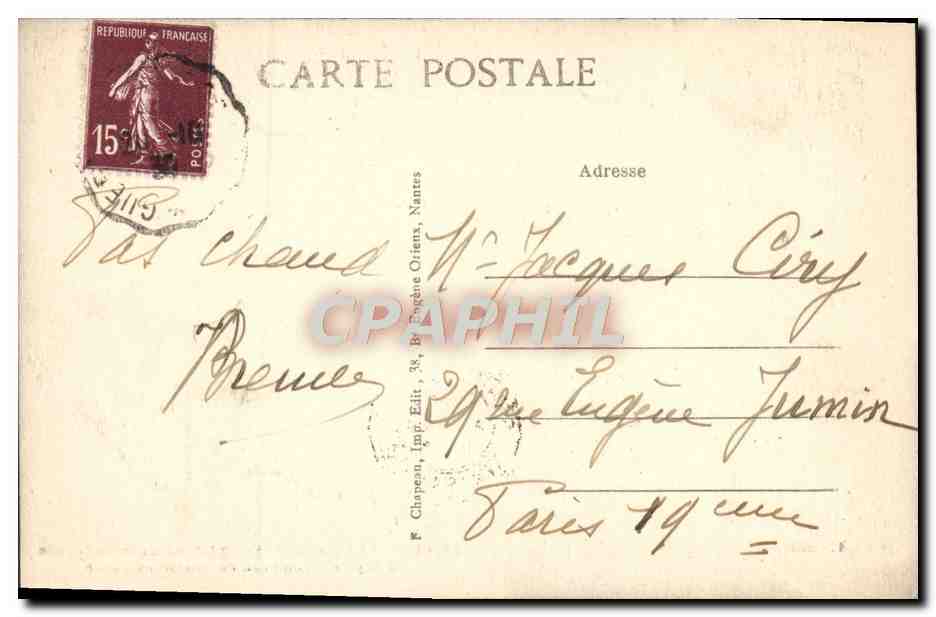 REPUBLIQUE FRANÇAISE
15c
POSTES
CARTE POSTALE
Adresse
Pas chaud
Mr Jacques Ciry
29 rue Eugène Jumin
Paris 19eme
F Chapeau, Imp. Edit, 38, Bd Eugène Orieux, Nantes
CPAPHIL